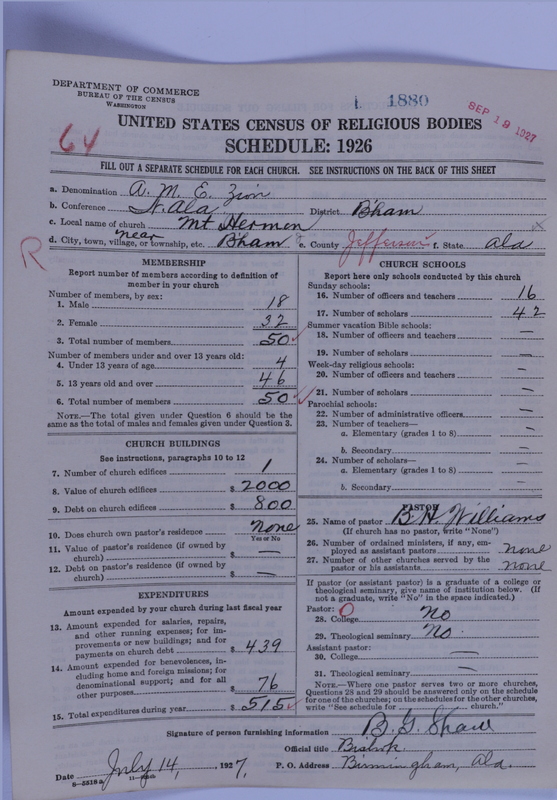 DEPARTMENT OF COMMERCE
BUREAU OF THE CENSUS
WASHINGTON
1 1880
SEP 19 1927
64
UNITED STATES CENSUS OF RELIGIOUS BODIES
SCHEDULE: 1926
FILL OUT A SEPARATE SCHEDULE FOR EACH CHURCH. SEE INSTRUCTIONS ON THE BACK OF THIS SHEET
a. Denomination A. M. E. Zion
b. Conference N. Ala District B'ham
c. Local name of church Mt Hermon
near
d. City, town, village, or township, etc. B'ham e. County Jefferson f. State Ala
R
MEMBERSHIP
Report number of members according to definition of
member in your church
Number of members, by sex:
1. Male 18
2. Female 32
3. Total number of members 50
Number of members under and over 13 years old:
4. Under 13 years of age 4
5. 13 years old and over 46
6. Total number of members 50
NOTE.—The total given under Question 6 should be the
same as the total of males and females given under Question 3.
CHURCH BUILDINGS
See instructions, paragraphs 10 to 12
7. Number of church edifices 1
8. Value of church edifices $ 2000
9. Debt on church edifices $ 800
10. Does church own pastor's residence none
Yes or No
11. Value of pastor's residence (if owned by
church) $ —
12. Debt on pastor's residence (if owned by
church) $ —
EXPENDITURES
Amount expended by your church during last fiscal year
13. Amount expended for salaries, repairs,
and other running expenses; for im-
provements or new buildings; and for
payments on church debt $ 439
14. Amount expended for benevolences, in-
cluding home and foreign missions; for
denominational support; and for all
other purposes $ 76
15. Total expenditures during year $ 515
CHURCH SCHOOLS
Report here only schools conducted by this church
Sunday schools:
16. Number of officers and teachers 16
17. Number of scholars 42
Summer vacation Bible schools:
18. Number of officers and teachers —
19. Number of scholars —
Week-day religious schools:
20. Number of officers and teachers —
21. Number of scholars —
Parochial schools:
22. Number of administrative officers —
23. Number of teachers—
a. Elementary (grades 1 to 8) —
b. Secondary —
24. Number of scholars—
a. Elementary (grades 1 to 8) —
b. Secondary —
PASTOR
25. Name of pastor B. H. Williams
(If church has no pastor, write "None")
26. Number of ordained ministers, if any, em-
ployed as assistant pastors none
27. Number of other churches served by the
pastor or his assistants none
If pastor (or assistant pastor) is a graduate of a college or
theological seminary, give name of institution below. (If
not a graduate, write "No" in the space indicated.)
Pastor: 0
28. College No
29. Theological seminary No
Assistant pastor:
30. College —
31. Theological seminary —
NOTE.—Where one pastor serves two or more churches,
Questions 28 and 29 should be answered only on the schedule
for one of the churches; on the schedules for the other churches,
write "See schedule for church."
Signature of person furnishing information B. G. Shaw
Official title Bishop
Date July 14, 1927. P. O. Address Birmingham, Ala.